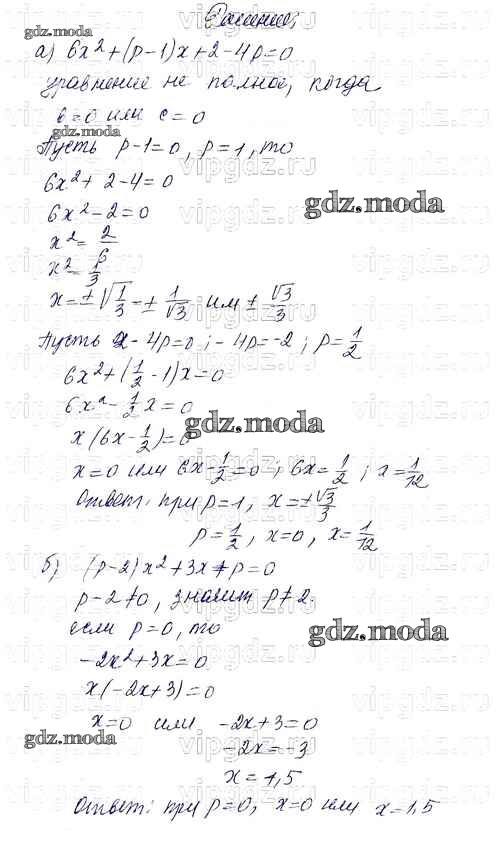 Решение;
а) 6x² + (p-1)x + 2 - 4p = 0
уравнение не полное, когда
в = 0 или с = 0
gdz.moda
Пусть p-1=0, p=1, то
6x² + 2 - 4 = 0
6x² - 2 = 0
gdz.moda
x² = 2/6
x² = 1/3
x = ±√(1/3) = ± 1/√3 или ± √3/3
Пусть 2 - 4p = 0; -4p = -2; p = 1/2
6x² + (1/2 - 1)x = 0
6x² - 1/2 x = 0
gdz.moda
x(6x - 1/2) = 0
x = 0 или 6x - 1/2 = 0; 6x = 1/2; x = 1/12
Ответ: при p = 1, x = ± √3/3
p = 1/2, x = 0, x = 1/12
б) (p-2)x² + 3x + p = 0
p - 2 ≠ 0, значит p ≠ 2.
если p = 0, то
gdz.moda
-2x² + 3x = 0
x(-2x + 3) = 0
x = 0 или -2x + 3 = 0
gdz.moda
-2x = -3
x = 1,5
Ответ: при p = 0, x = 0 или x = 1,5